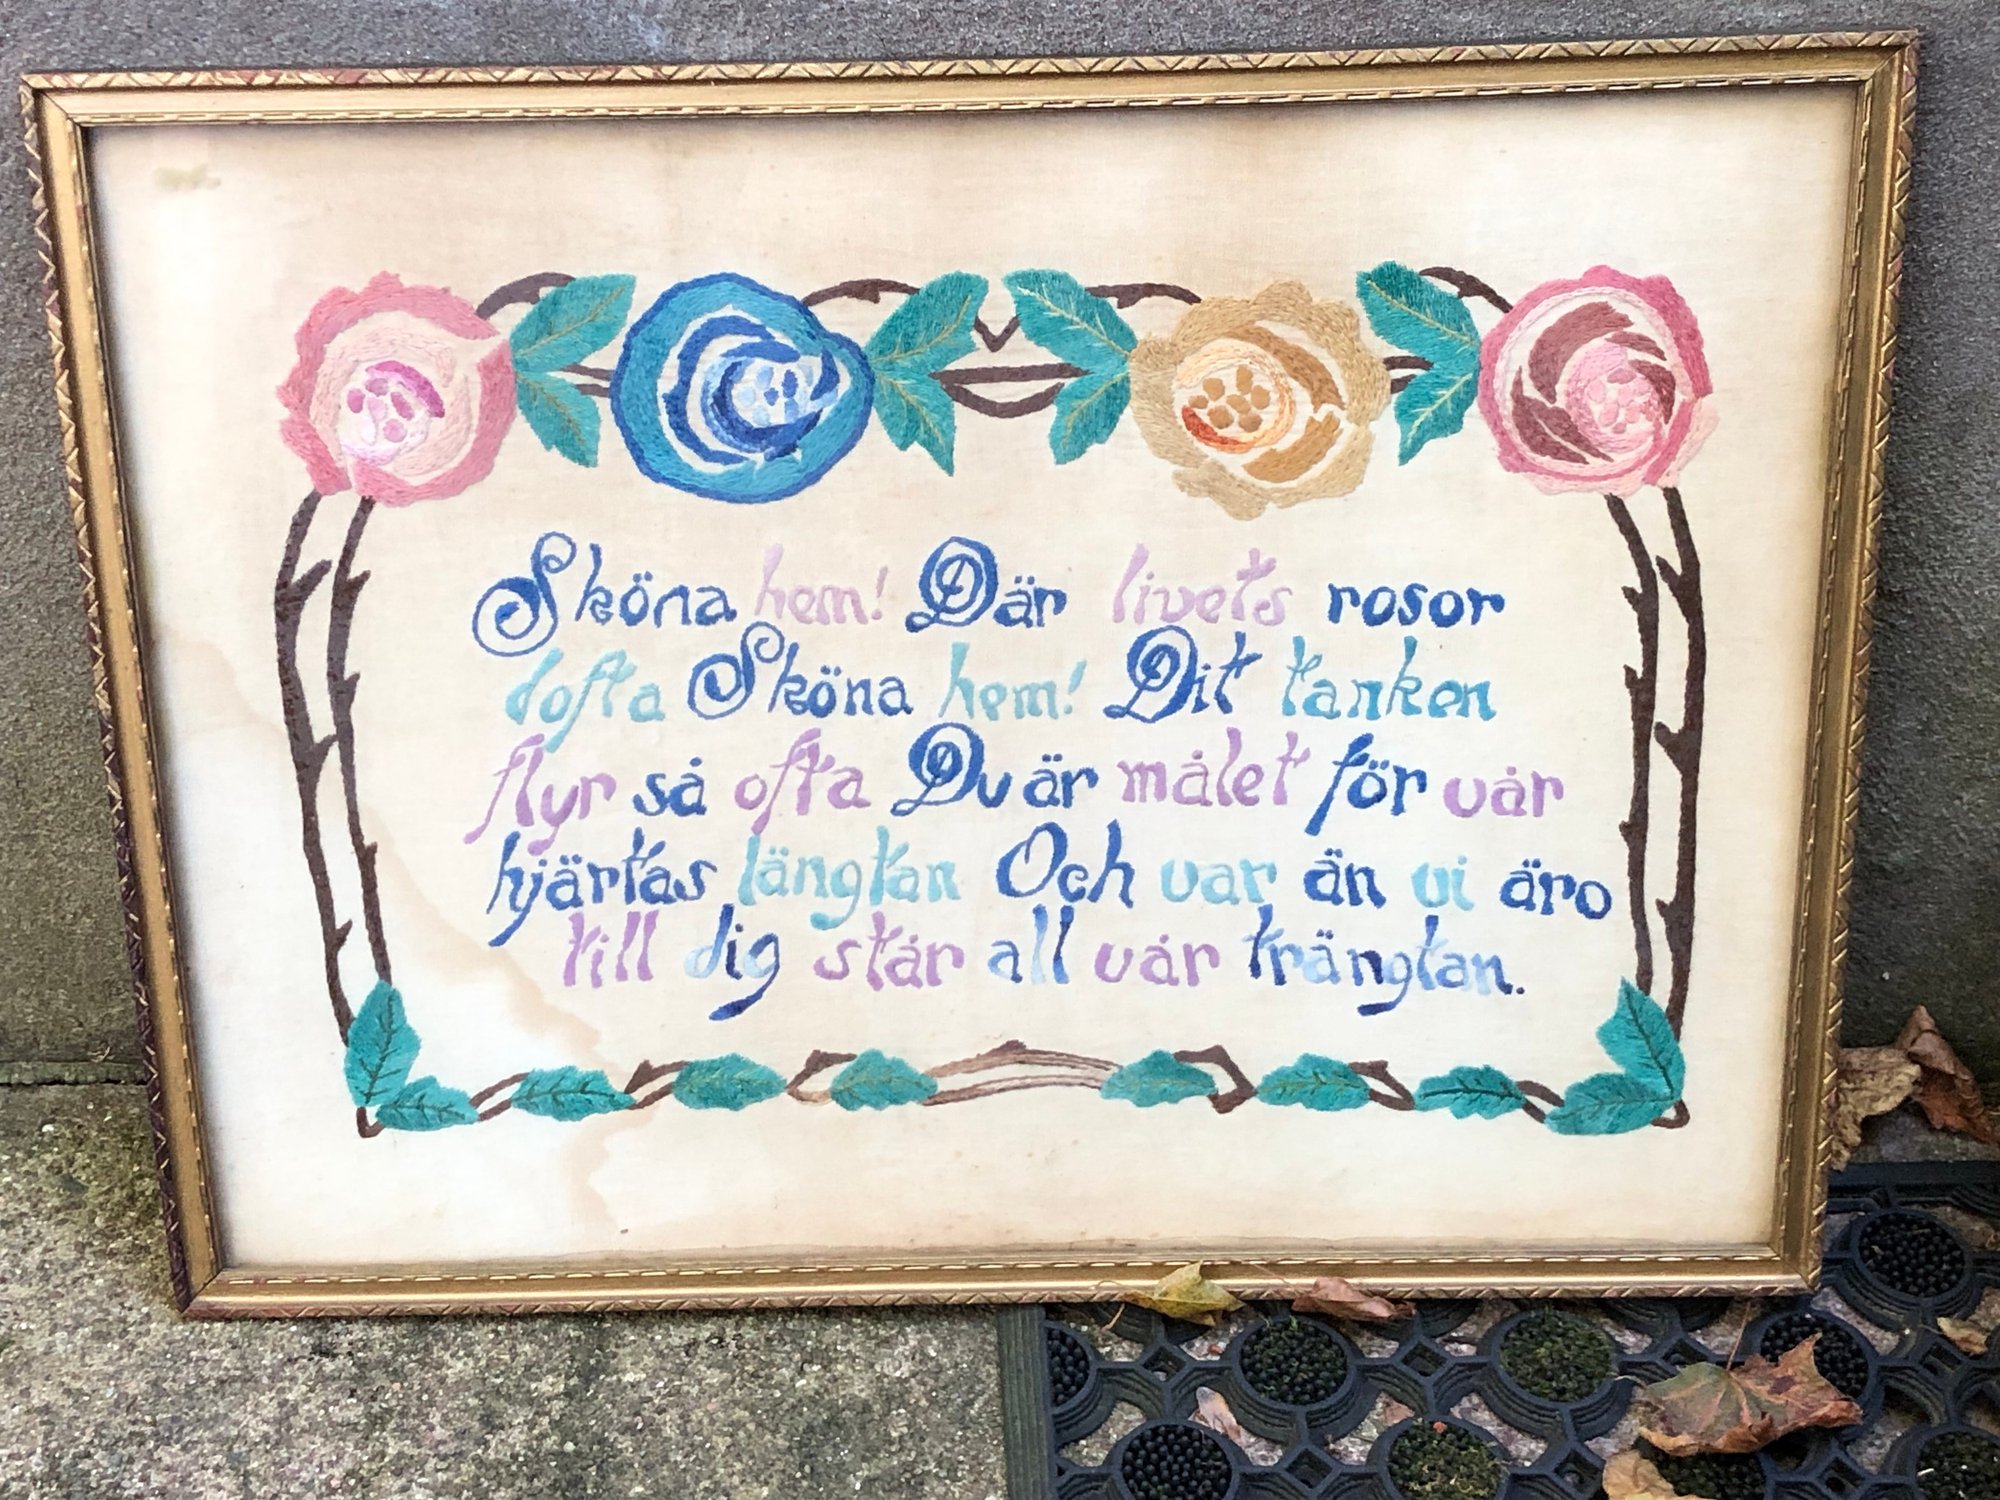 Sköna hem! Där livets rosor
dofta Sköna hem! Dit tanken
flyr så ofta Du är målet för vår
hjärtas längtan Och var än vi äro
till dig står all vår trängtan.